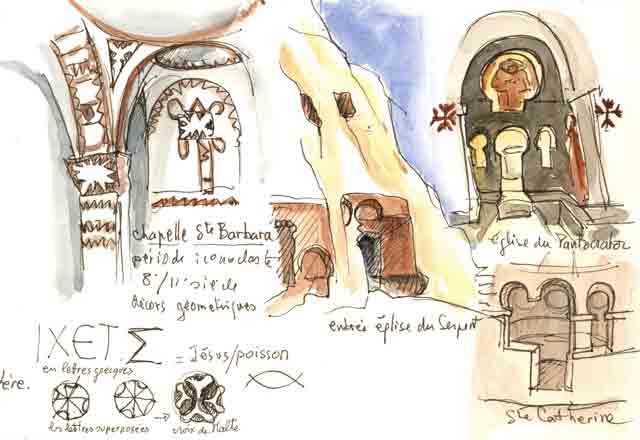 chapelle Ste Barbara
période iconoclaste
8e/11e siècle
décors géometriques
entrée église du Serpent
Église du Pantocrator
Ste Catherine
IXET.Σ = Jésus/poisson
en lettres grecques
ère.
les lettres superposées → croix de Malte